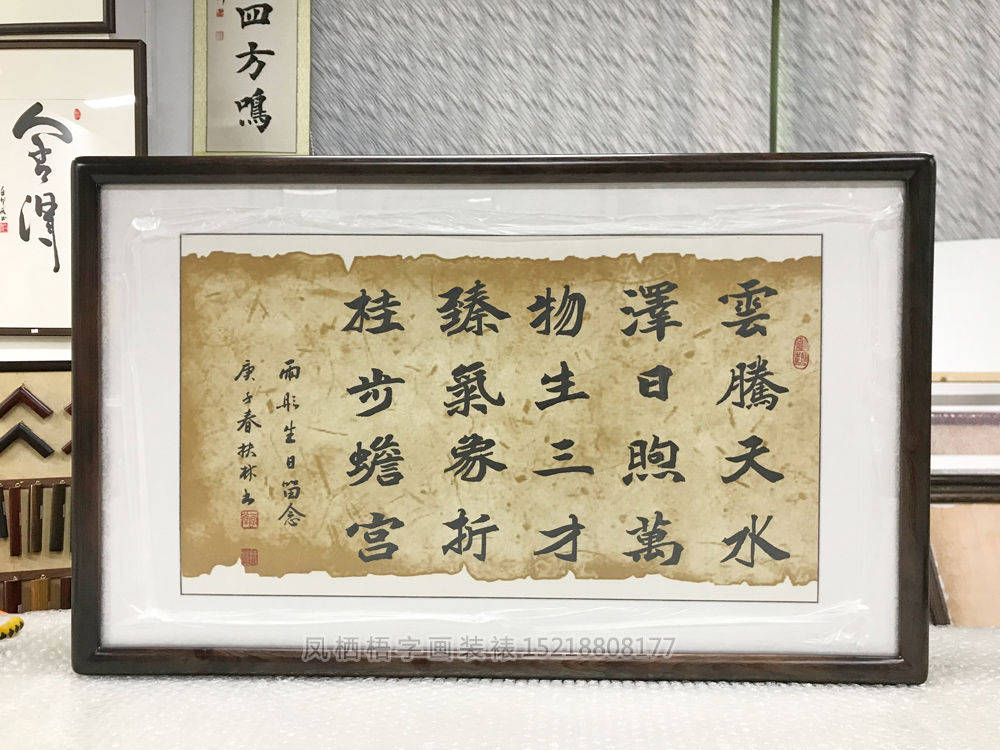 雲騰天水
澤日煦萬
物生三才
臻氣象折
桂步蟾宮
雨彤生日留念
庚子春扶林书
四方鳴
舍得
凤栖梧字画装裱.15218808177